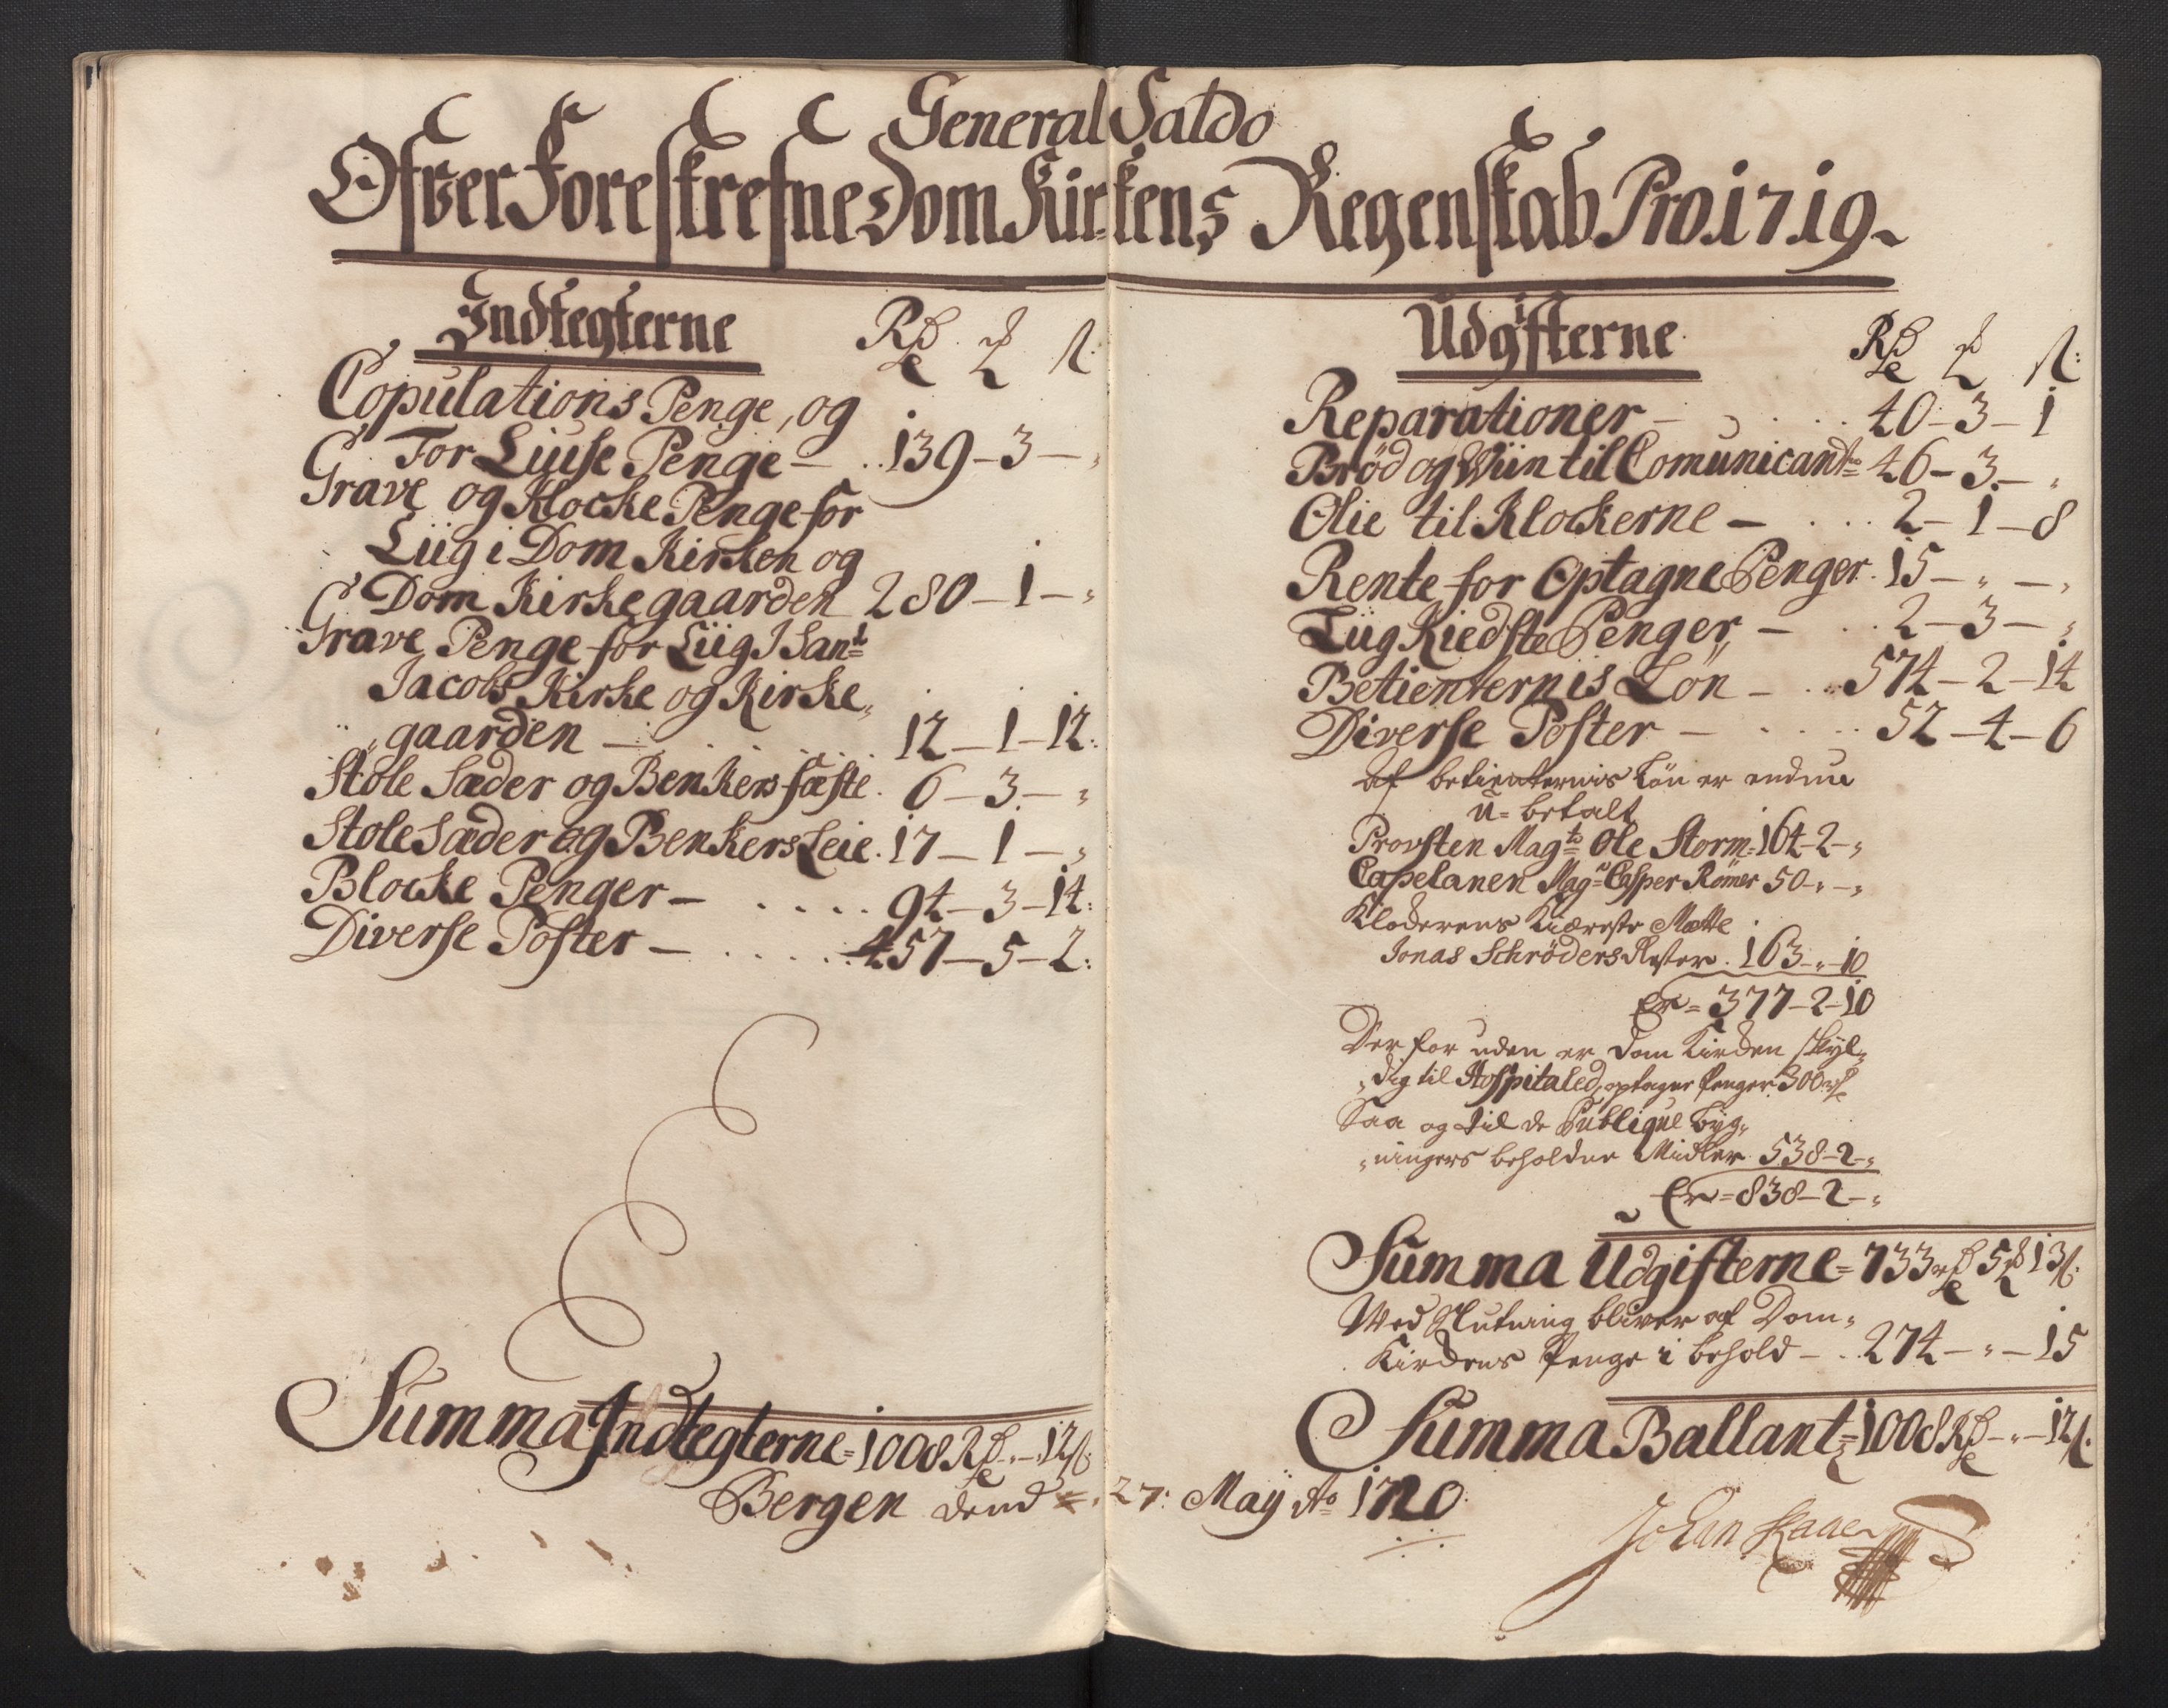 General Saldo
Ofver Foreskrefne Dom Kirkens Regenskab Pro. 1719
Indtegterne Rd
Copulations Penge, og
For Liuse Penge - .. 139 - 3 - „
Grave og Klocke Penge for
Liig i Dom Kirken og
Dom Kirkegaarden 280 - 1 - „
Grave Penge for Liig I Sant
Jacobs Kirke og Kirke„
„gaarden - . . . . . 12 - 1 - 12:
Stole Sæder og Benkers fæste. 6 - 3. - „
Stole Sæder og Benkers Leie. 17 - 1 - „
Blocke Penger - . . . . 94 - 3 - 14:
Diverse Poster - . . . . . 457 - 5 - 2:
Summa Indtegterne = 1008 Rd - „ - 12 s:
Udgifterne Rd
Reparationer - . . . 40 - 3 - 1
Brød og Wiin til Comunicant= 46 - 3. - „
Olie til Klockerne - . . . 2 - 1 - 8
Rente for Optagne Penger. 15 - „ - „
Liig Kiedste Penger, - . . 2 - 3 - „
Betienternis Løn - .. 574 - 2 - 14
Diverse Poster - . . . . 52 - 4 - 6
af betienternis Løn er endnu
u= betalt
Provsten Magto Ole Storm = 164 - 2 - „
Capelanen Magr Casper Römer 50 - „ - „
Klockerens Kiæreste Mette
Jonas Schrøders Rester. 163 - „ - 10
Er = 377 - 2 - 10
Der for uden er Dom Kirken skyl„
„dig til Hospitaled, optagne Penger 300 rd
Saa og til de Publique Byg„
„ningers beholdne Midler. 538 - 2 - „
Er = 838 - 2 - „
Summa Udgifterne = 733 rd 5 13 s:
Wed Slutning bliver af Dom„
Kirkens Penge i behold - . 274 - „ - 15
Summa Ballantz = 1008 Rd - „ - 12 s.
Bergen dend 27: Maÿ Ao 1720.
Johan Skaae